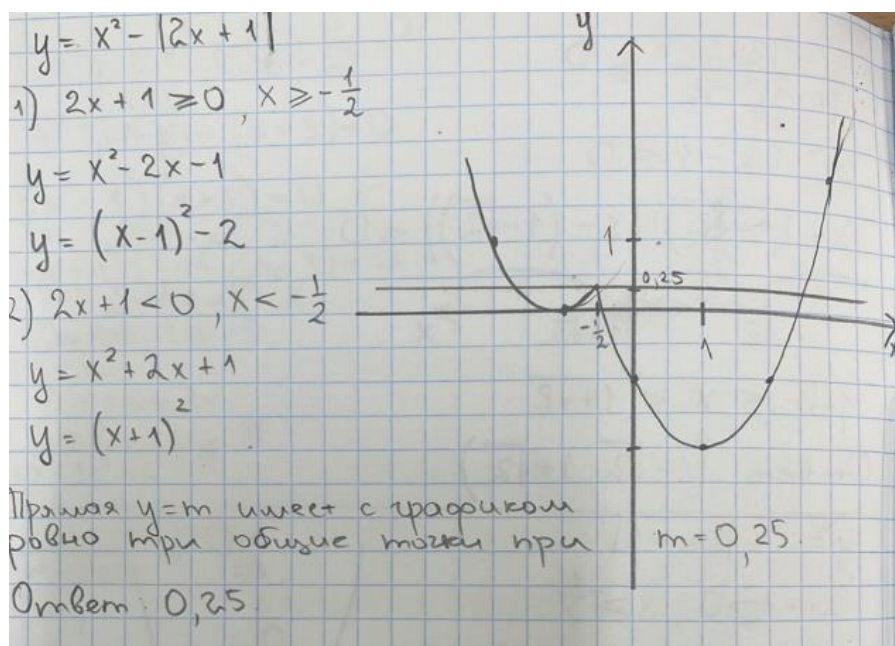 y = x² - |2x + 1|
1) 2x + 1 ⩾ 0, x ⩾ -1/2
y = x² - 2x - 1
y = (x-1)² - 2
2) 2x + 1 < 0, x < -1/2
y = x² + 2x + 1
y = (x+1)²
Прямая y=m имеет с графиком
ровно три общие точки при m = 0,25.
Ответ: 0,25.
y
1
0,25
-1/2
1
x